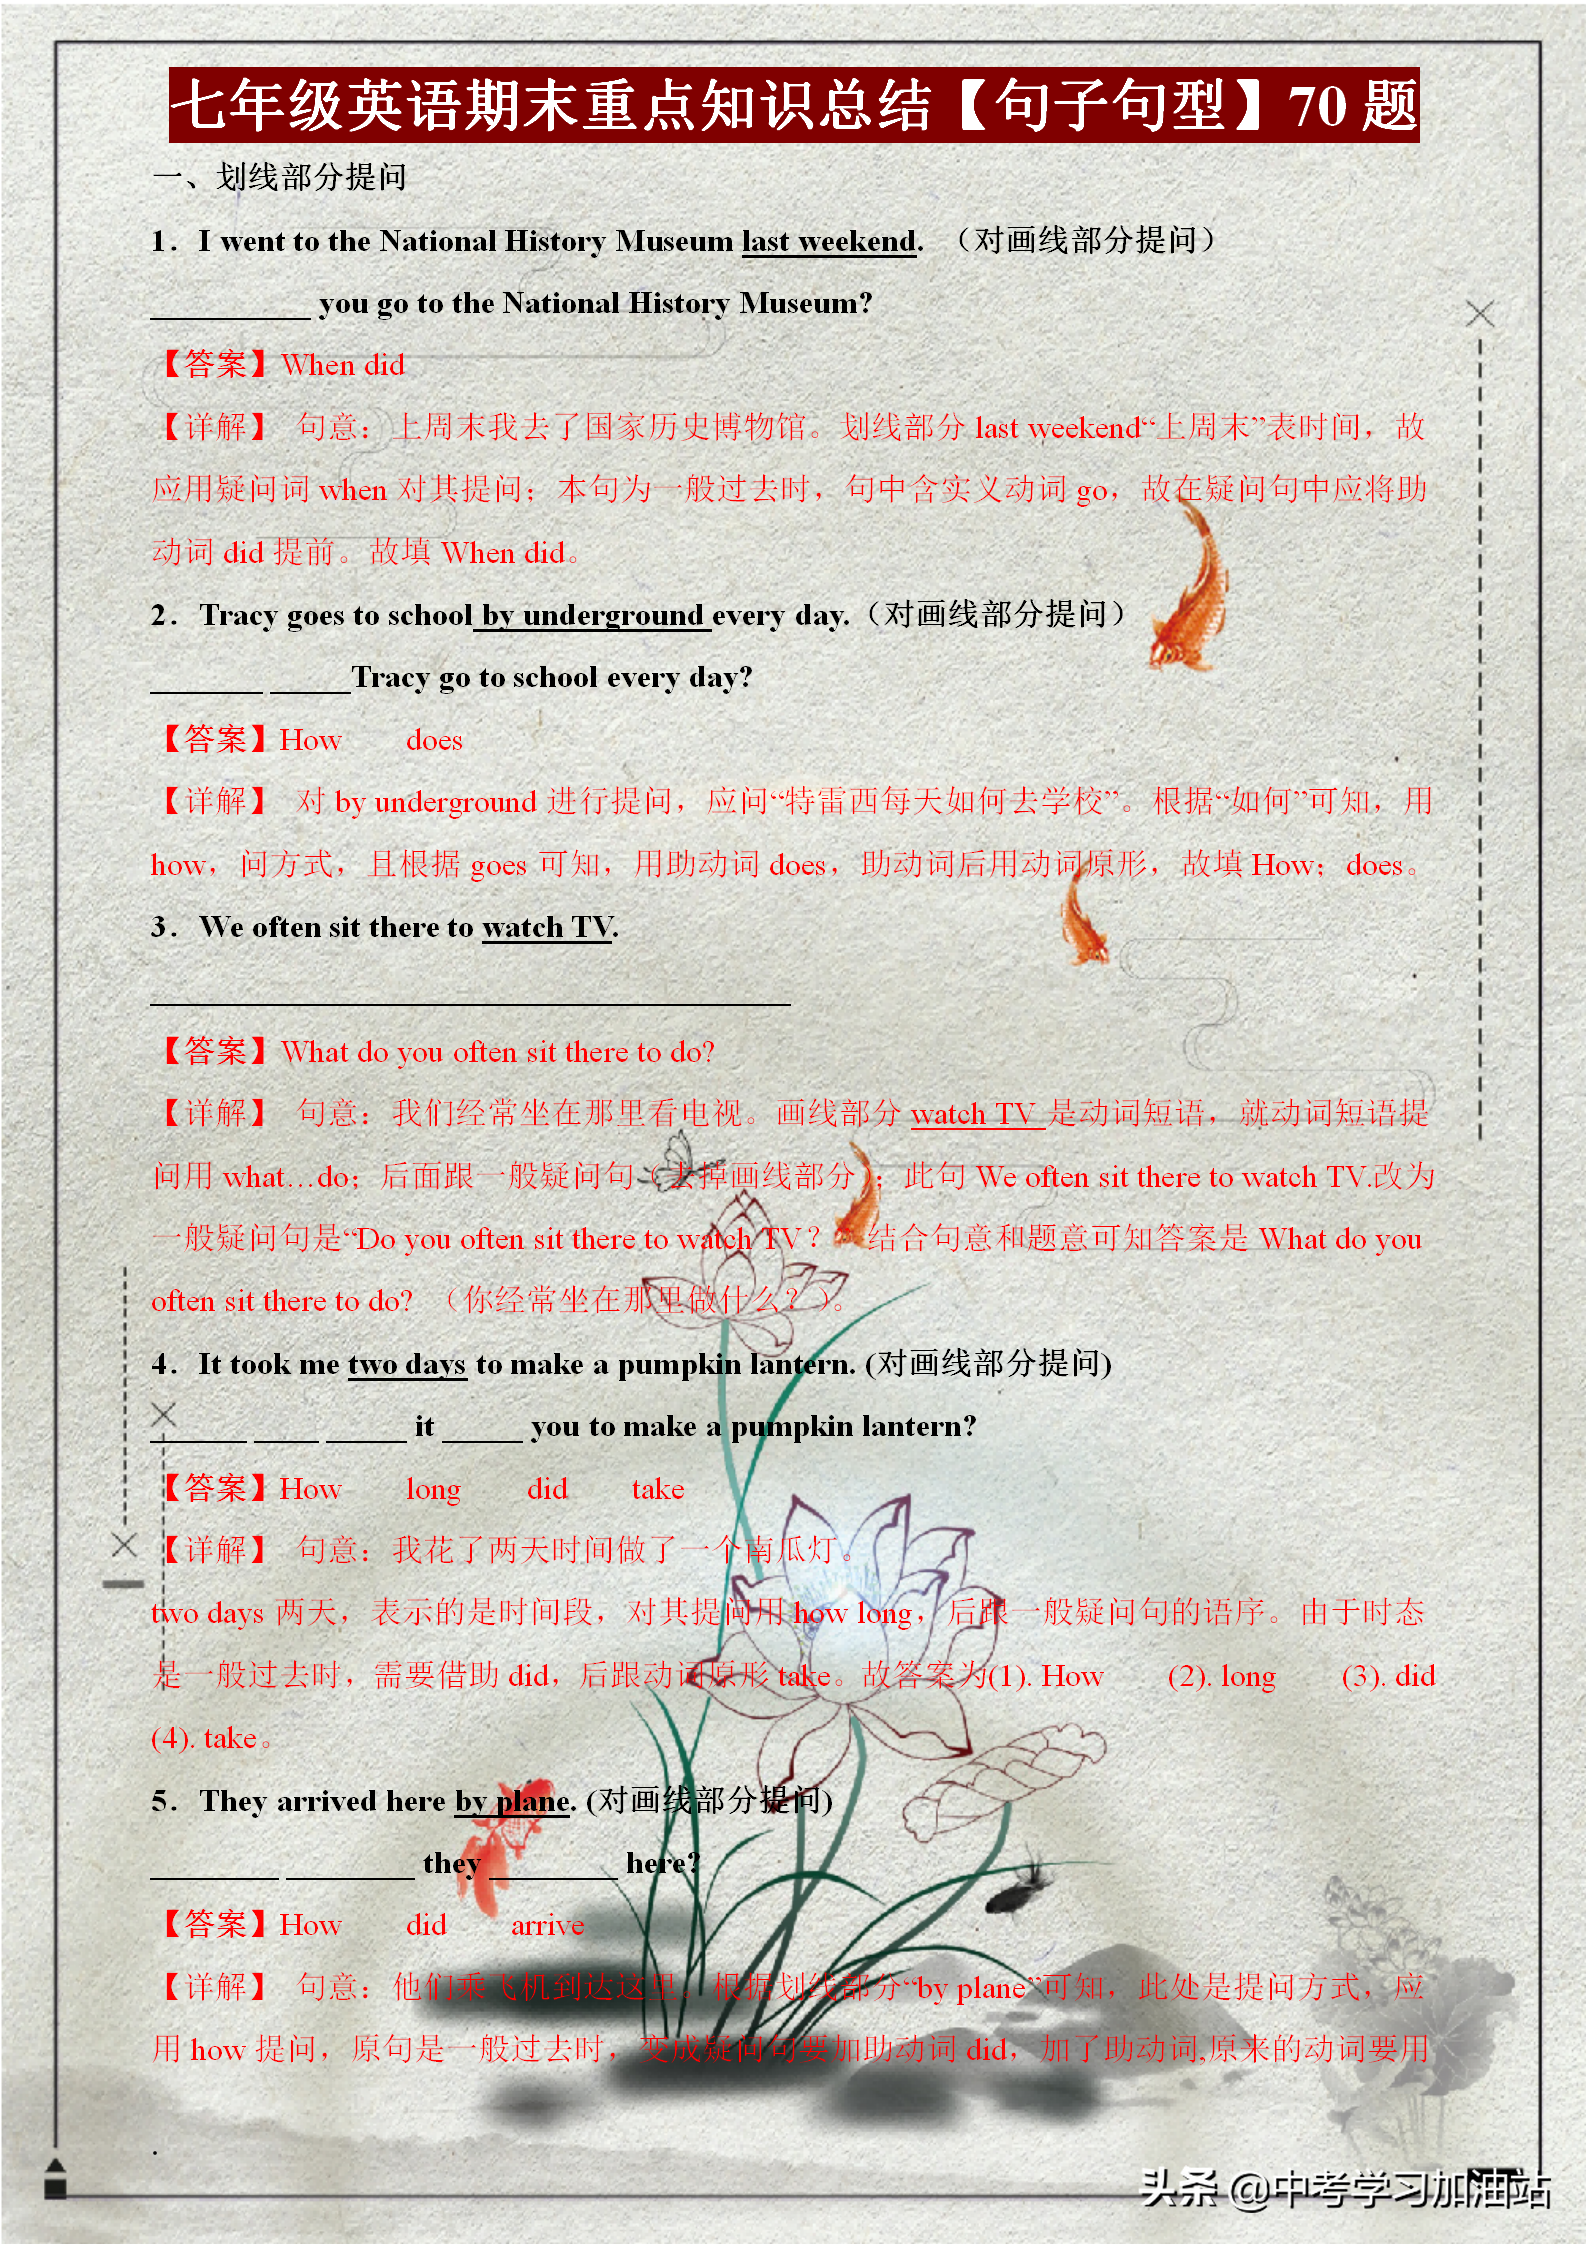 七年级英语期末重点知识总结【句子句型】70 题
一、划线部分提问
1．I went to the National History Museum last weekend. （对画线部分提问）
__________ you go to the National History Museum?
【答案】When did
【详解】 句意：上周末我去了国家历史博物馆。划线部分 last weekend“上周末”表时间，故
应用疑问词 when 对其提问；本句为一般过去时，句中含实义动词 go，故在疑问句中应将助
动词 did 提前。故填 When did。
2．Tracy goes to school by underground every day.（对画线部分提问）
_______ _____Tracy go to school every day?
【答案】How does
【详解】 对 by underground 进行提问，应问“特雷西每天如何去学校”。根据“如何”可知，用
how，问方式，且根据 goes 可知，用助动词 does，助动词后用动词原形，故填 How；does。
3．We often sit there to watch TV.
________________________________________
【答案】What do you often sit there to do?
【详解】 句意：我们经常坐在那里看电视。画线部分 watch TV 是动词短语，就动词短语提
问用 what…do；后面跟一般疑问句（去掉画线部分）；此句 We often sit there to watch TV.改为
一般疑问句是“Do you often sit there to watch TV？” 结合句意和题意可知答案是 What do you
often sit there to do? （你经常坐在那里做什么？）。
4．It took me two days to make a pumpkin lantern. (对画线部分提问)
______ ____ _____ it _____ you to make a pumpkin lantern?
【答案】How long did take
【详解】 句意：我花了两天时间做了一个南瓜灯。
two days 两天，表示的是时间段，对其提问用 how long，后跟一般疑问句的语序。由于时态
是一般过去时，需要借助 did，后跟动词原形 take。故答案为(1). How (2). long (3). did
(4). take。
5．They arrived here by plane. (对画线部分提问)
________ ________ they ________ here?
【答案】How did arrive
【详解】 句意：他们乘飞机到达这里。根据划线部分“by plane”可知，此处是提问方式，应
用 how 提问，原句是一般过去时，变成疑问句要加助动词 did，加了助动词,原来的动词要用
.
头条 @中考学习加油站